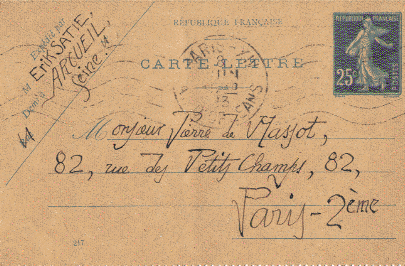 RÉPUBLIQUE FRANÇAISE
CARTE LETTRE
RÉPUBLIQUE FRANÇAISE
25c
POSTES
ERIK SATIE,
ARCUEIL,
Seine.
M
PARIS
Monsieur Pierre de Massot,
82, rue des Petits Champs, 82,
Paris-2ème